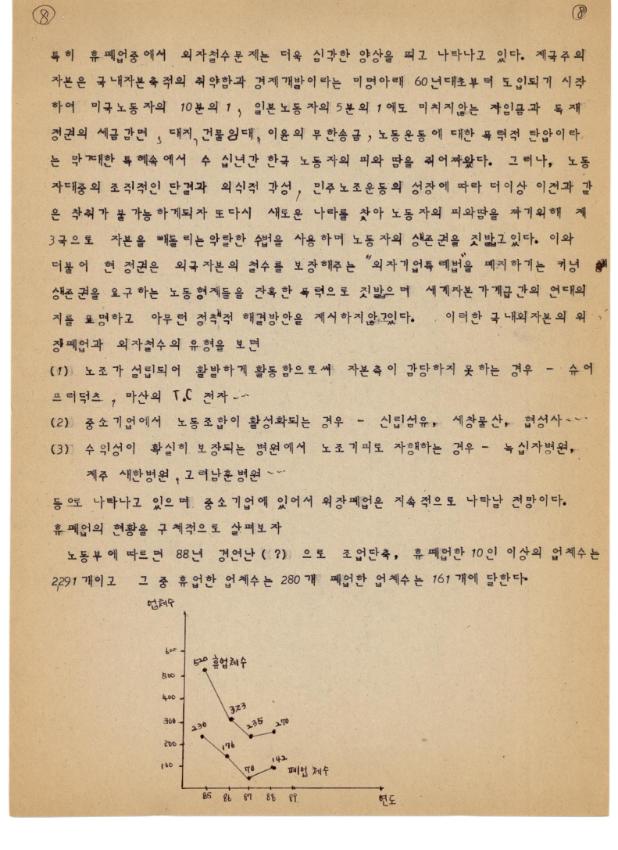 8 8
특히 휴폐업중에서 외자철수문제는 더욱 심각한 양상을 띄고 나타나고 있다. 제국주의
자본은 국내자본축적의 취약함과 경제개발이라는 미명아래 60년대초부터 도입되기 시작
하여 미국노동자의 10분의 1, 일본노동자의 5분의 1에도 미치지않는 저임금과 독재
정권의 세금감면, 대지,건물임대, 이윤의 무한송금, 노동운동에 대한 폭력적 탄압이라
는 막대한 특혜속에서 수 십년간 한국 노동자의 피와 땀을 쥐어짜왔다. 그러나, 노동
자대중의 조직적인 단결과 의식적 각성, 민주노조운동의 성장에 따라 더이상 이전과 같
은 착취가 불가능하게되자 또다시 새로운 나라를 찾아 노동자의 피와땀을 짜기위해 제
3국으로 자본을 빼돌리는악랄한 수법을 사용하며 노동자의 생존권을 짓밟고있다. 이와
더불어 현 정권은 외국자본의 철수를 보장해주는 "외자기업특례법"을 폐지하기는 커녕
생존권을 요구하는 노동형제들을 잔혹한 폭력으로 짓밟으며 세계자본가계급간의 연대의
지를 표명하고 아무런 정책적 해결방안을 제시하지않고있다. 이러한 국내외자본의 위
장폐업과 외자철수의 유형을 보면
(1) 노조가 설립되어 활발하게 활동함으로써 자본측이 감당하지 못하는 경우 - 슈어
프러덕츠, 마산의 T.C 전자---
(2) 중소기업에서 노동조합이 활성화되는 경우 - 신립섬유, 세창물산, 협성사---
(3) 수익성이 확실히 보장되는 병원에서 노조기피로 자행하는 경우 - 녹십자병원,
제주 새한병원, 고려남훈병원---
등으로 나타나고 있으며 중소기업에 있어서 위장폐업은 지속적으로 나타날 전망이다.
휴폐업의 현황을 구체적으로 살펴보자
노동부에 따르면 88년 경영난(?)으로 조업단축, 휴폐업한 10인 이상의 업체수는
2,291개이고 그 중 휴업한 업체수는 280개 폐업한 업체수는 161개에 달한다.
업체수
600
500
400
300
200
100
520 휴업체수
323
235
270
230
176
78
142
폐업체수
85 86 87 88 89
연도